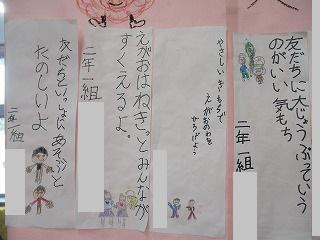 友だちに大じょうぶっていう
のがいい気もち
二年一組
やさしい きもちで
えがおのわを
ひろげよう
えがおはねきっとみんなが
すくえるよ。
二年一組
友だちといっしょにあそぶと
たのしいよ
二年一組